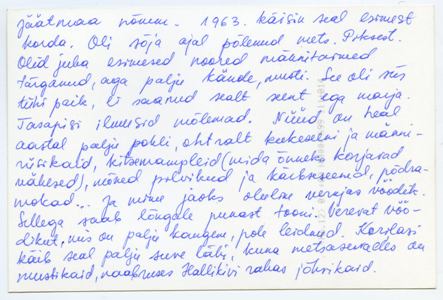 Jäätmaa nõmm. 1963. käisin seal esimest
korda. Oli sõja ajal põlenud mets.
Olid juba esimesed noored männitaimed
tärganud, aga palju kände, musti. See oli siis
tühi paik, ei saanud sealt seent ega marja.
Tasapisi ilmusid mõlemad. Nüüd on heal
aastal palju pohli, ohtralt kukeseeni ja männi-
riisikaid, kitsemampleid (mida õnneks korjavad
vähesed), mõned pilvikud ja käibnseened, põdra-
mokad... Ja minu jaoks oluline verejas vöödik.
Sellega saab lõngale punast tooni. Verevat vöö-
dikut, mis on palju kangem, pole leidnud. Korilasi
käib seal palju suve läbi, kuna metsaservades on
mustikaid, naabruses Hallikivi rabas jõhvikaid.